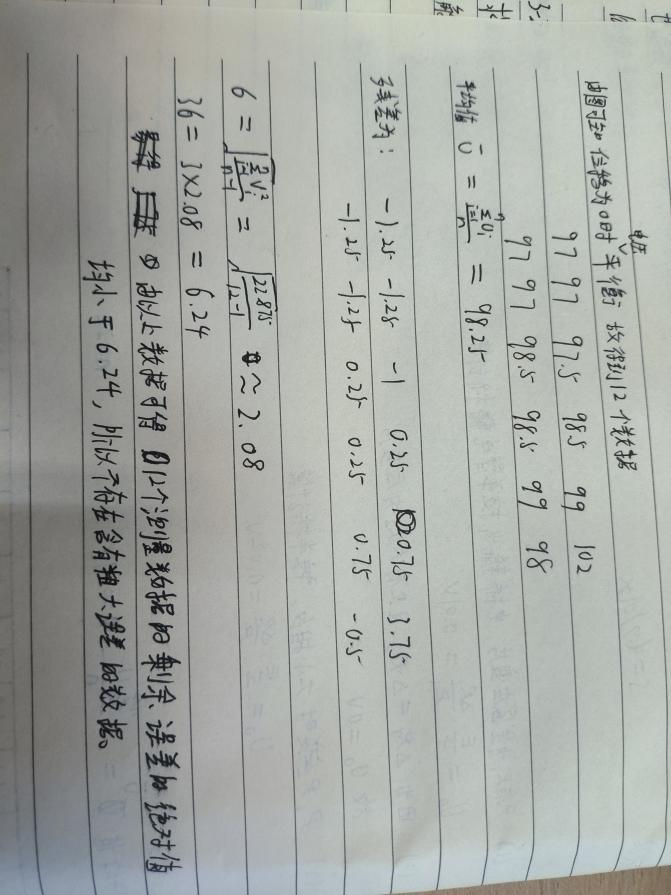 由图可知 位移为0时 电压平衡, 故得到12个数据
97 97 97.5 98.5 99 102
97 97 98.5 98.5 99 98
平均值 Ū = Σⁿᵢ₌₁Uᵢ/n = 98.25
残差为: -1.25 -1.25 -1 0.25 0.75 3.75
-1.25 -1.25 0.25 0.25 0.75 -0.5
6 = √(Σⁿᵢ₌₁Vᵢ²/n-1) = √(22.875/12-1) ≈ 2.08
36 = 3×2.08 = 6.24
由以上数据可得 12个测量数据的剩余误差的绝对值
均小于6.24, 所以不存在含有粗大误差的数据。